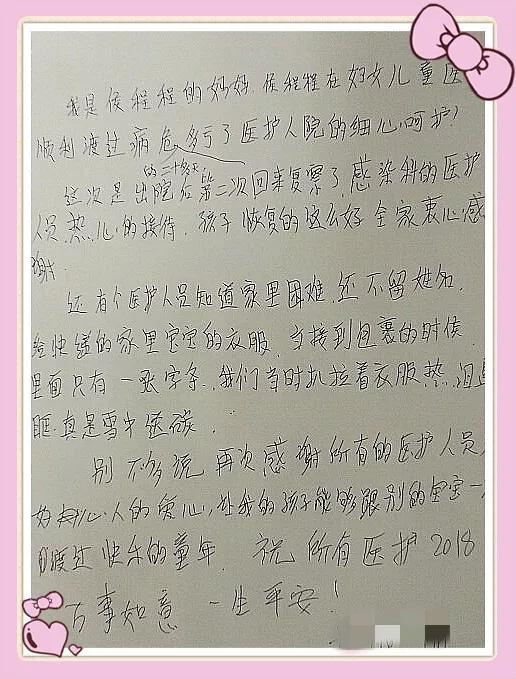 我是侯程程的妈妈,侯程程在妇女儿童医
顺利渡过病危,多亏了医护人院的细心呵护!
这次是出院后的二十多天第二次回来复察了,感染科的医护
人员热心的接待,孩子恢复的这么好全家衷心感
谢.
还有个医护人员知道家里困难,还不留姓名,
给快递的家里宝宝的衣服,当接到包裹的时候,
里面只有一张字条,我们当时扒拉着衣服热泪
眶真是雪中送碳.
别不多说,再次感谢所有的医护人员,
好心人的爱心,让我的孩子能够跟别的宝宝一
渡过快乐的童年. 祝所有医护2018
万事如意 一生平安!